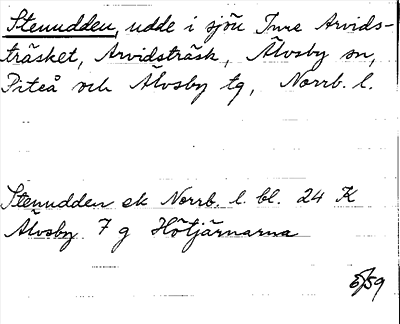 Stenudden, udde i sjön Inre Arvids-
träsket, Arvidsträsk, Älvsby sn,
Piteå och Älvsby tg, Norrb. l.
Stenudden ek Norrb. l. bl. 24 K
Älvsby 7 g Hötjärnarna
5/59